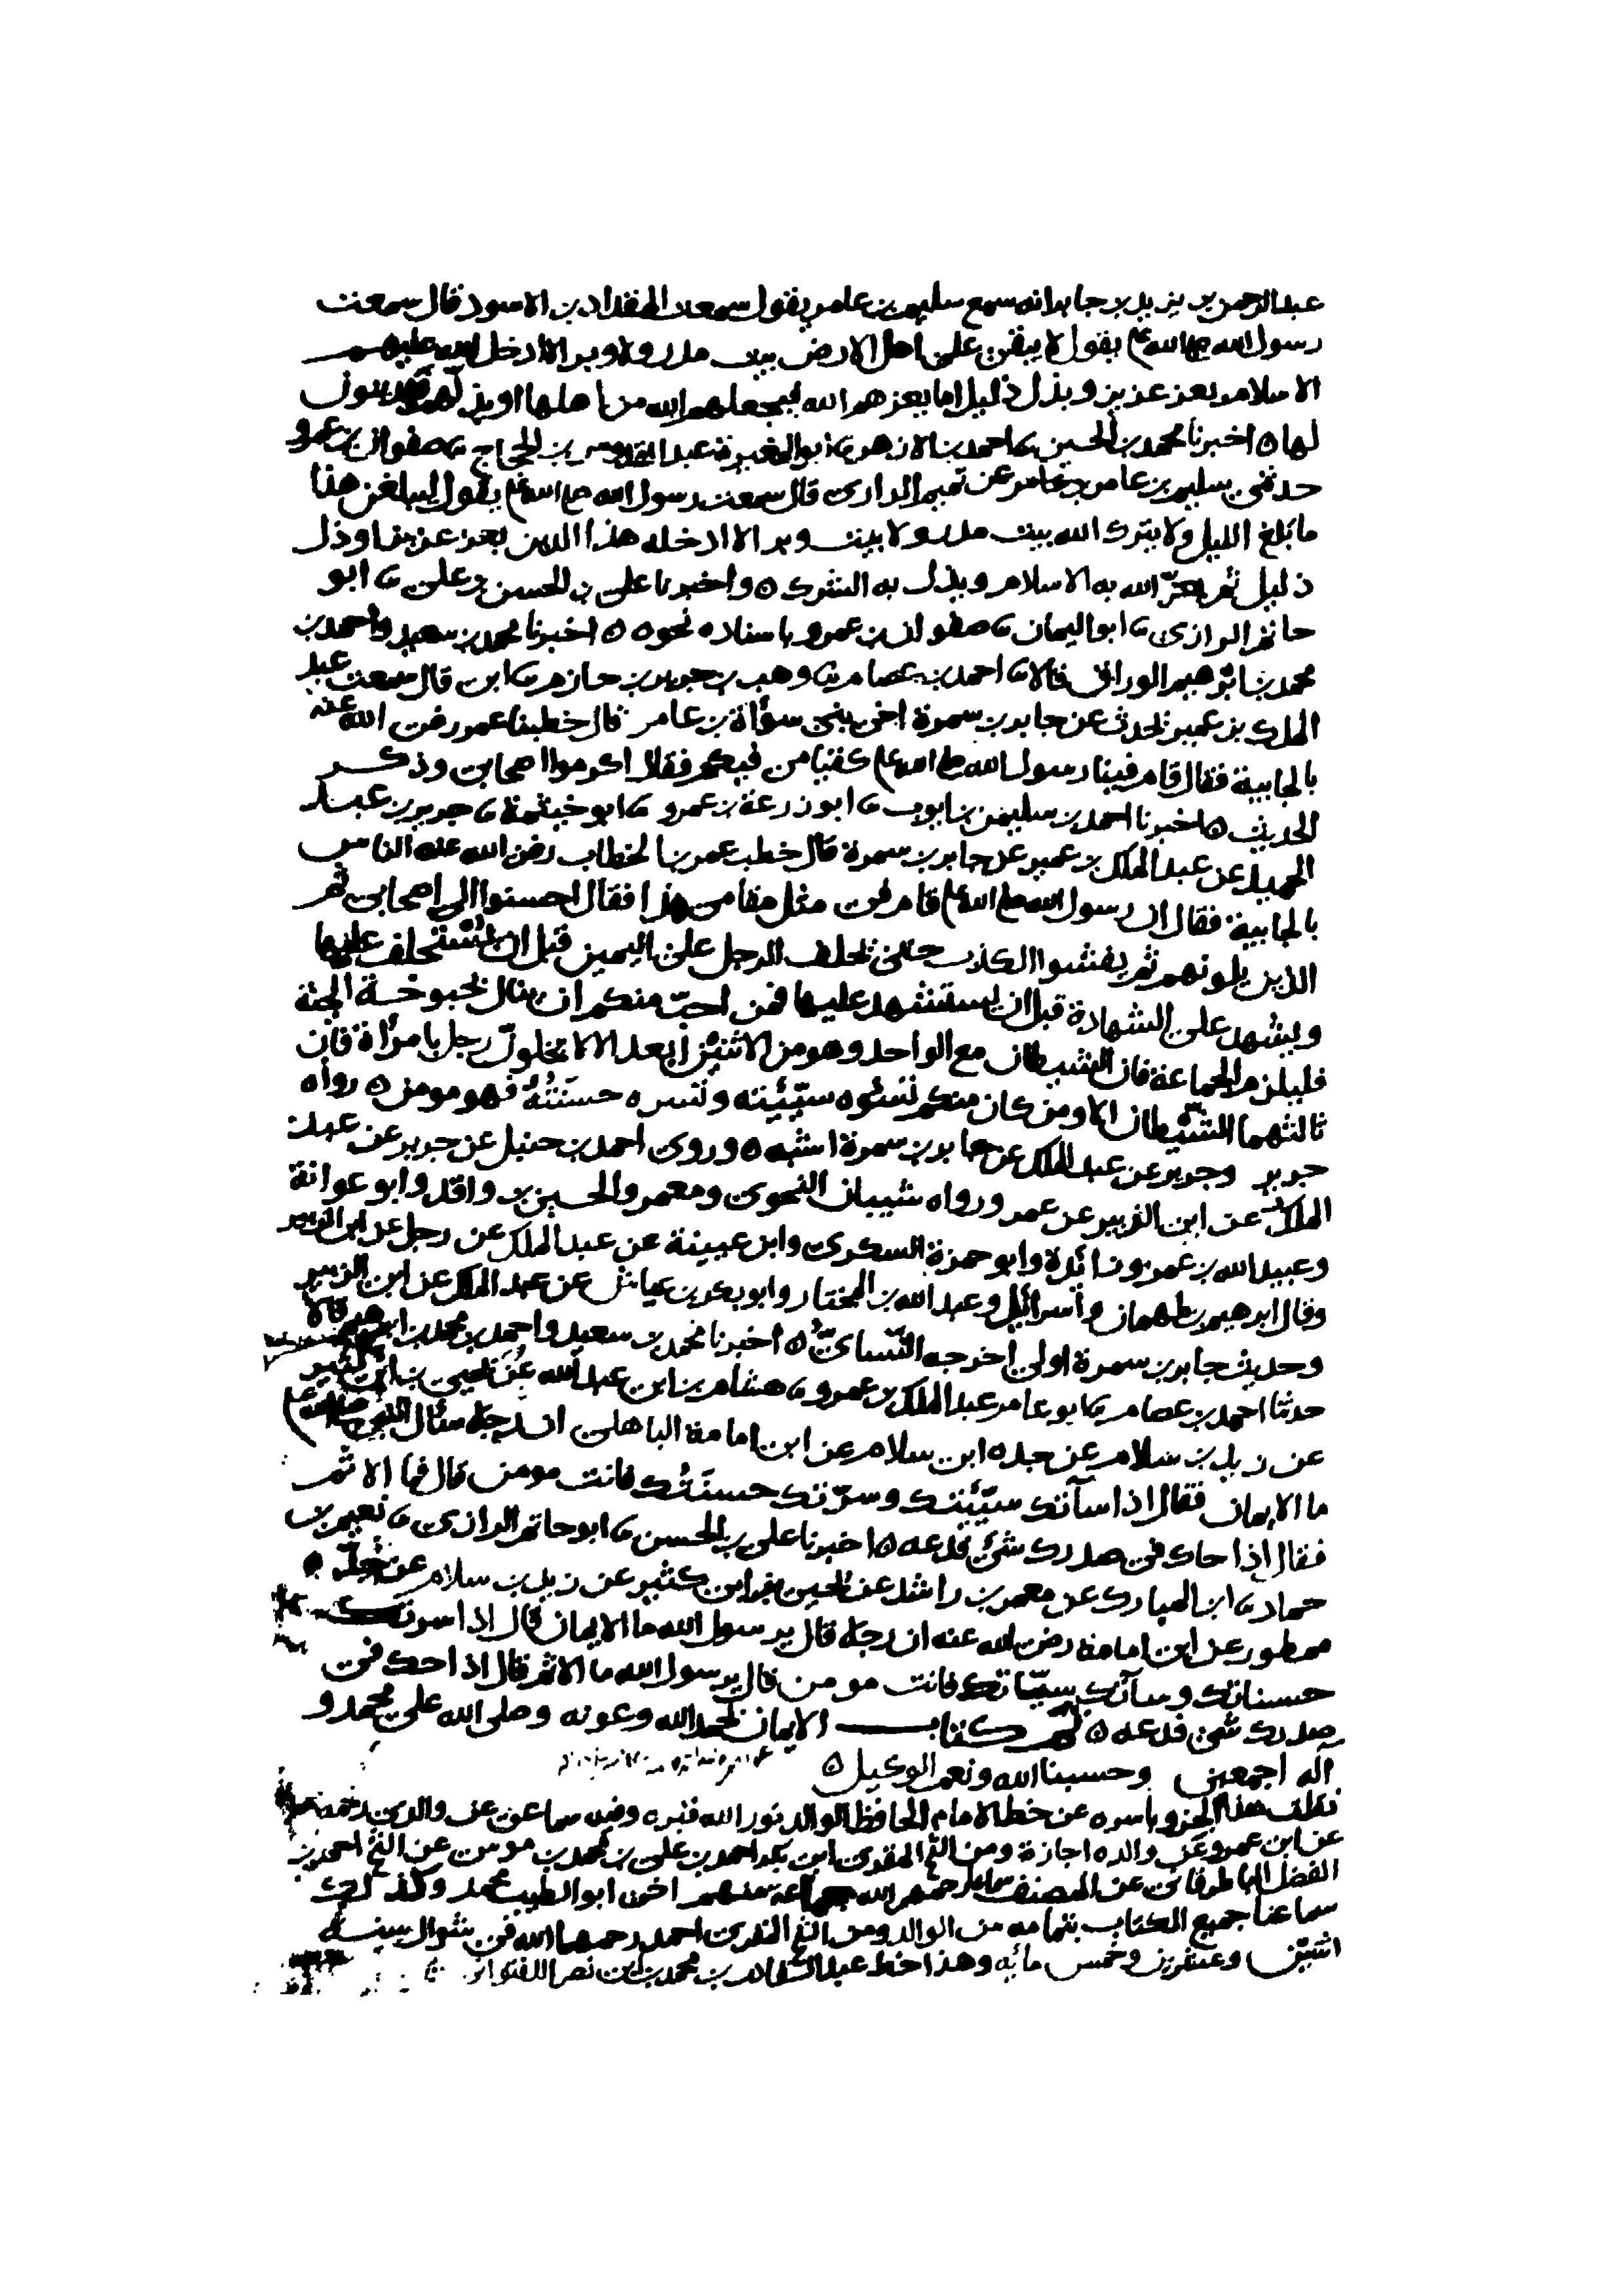 عبد الرحمن بن يزيد بن جابر انه سمع سليم بن عامر يقول سمعت المقداد بن الاسود قال سمعت
رسول الله صلى الله عليه يقول لا يبقى على اهل الارض بيت مدر ولا وبر الا ادخل الله عليهم
الاسلام بعز عزيز وبذل ذليل اما يعزهم الله فيجعلهم الله من اهلها او يذلهم فيدينون
لها ٥ اخبرنا محمد بن الحسين ثنا احمد بن الازهر ثنا ابو المغيرة عبد القدوس بن الحجاج ثنا صفوان بن عمرو
حدثني سليم بن عامر عن تميم الداري قال سمعت رسول الله صلى الله عليه يقول ليبلغن هذا
ما بلغ الليل ولا يترك الله بيت مدر ولا بيت وبر الا ادخله هذا الدين بعز عزيز او ذل
ذليل يعز الله به الاسلام ويذل به الشرك ٥ واخبرنا علي بن الحسن بن علي ثنا ابو
حاتم الرازي ثنا ابو اليمان ثنا صفوان بن عمرو باسناده نحوه ٥ اخبرنا محمد بن سعيد واحمد بن
محمد بن ابرهيم الوراق قالا ثنا احمد بن عصام ثنا وهب بن جرير بن حازم ثنا ابي قال سمعت عبد
الملك بن عمير يحدث عن جابر بن سمرة اخي بني سؤاة بن عامر قال خطبنا عمر رضي الله عنه
بالجابية فقال قام فينا رسول الله صلى الله عليه كقيامي فيكم فقال اكرموا اصحابي وذكر
الحديث ٥ اخبرنا احمد بن سليمن بن ايوب ثنا ابو زرعة بن عمرو ثنا ابو خيثمة ثنا جرير بن عبد
الحميد عن عبد الملك بن عمير عن جابر بن سمرة قال خطب عمر بن الخطاب رضي الله عنه الناس
بالجابية فقال ان رسول الله صلى الله عليه قام في مثل مقامي هذا فقال احسنوا الى اصحابي ثم
الذين يلونهم ثم يفشوا الكذب حتى يحلف الرجل على اليمين قبل ان يستحلف عليها
ويشهد على الشهادة قبل ان يستشهد عليها فمن احب منكم ان ينال بحبوحة الجنة
فليلزم الجماعة فان الشيطان مع الواحد وهو من الاثنين ابعد الا لا يخلون رجل بامرأة فان
ثالثهما الشيطان الا ومن كان منكم تسوه سيئته وتسره حسنته فهو مومن ٥ رواه
جرير وجرير عن عبد الملك عن جابر بن سمرة اشبه ٥ وروى احمد بن حنبل عن جرير عن عبد
الملك عن ابن الزبير عن عمر ورواه شيبان النحوي ومعمر والحسين بن واقد وابو عوانة
وعبيد الله بن عمرو وزائدة وابو حمزة السكري وابن عيينة عن عبد الملك عن رجل عن ابن الزبير
وقال ابرهيم بن طهمان واسرائيل وعبد الله بن المختار وابو بكر بن عياش عن عبد الملك عن ابن الزبير
وحديث جابر بن سمرة اولى اخرجه النسائي ٥ اخبرنا محمد بن سعيد واحمد بن محمد بن ابرهيم قالا
حدثنا احمد بن عصام ثنا ابو عامر عبد الملك بن عمرو ثنا هشام بن ابي عبد الله عن يحيى بن ابي كثير
عن زيد بن سلام عن جده ابي سلام عن ابي امامة الباهلي ان رجلا سأل النبي صلى الله عليه
ما الايمان فقال اذا سآتك سيئتك وسرتك حسنتك فانت مومن قال فما الاثم
فقال اذا حاك في صدرك شئ فدعه ٥ اخبرنا علي بن الحسن ثنا ابو حاتم الرازي ثنا نعيم بن
حماد ثنا ابن المبارك عن معمر بن راشد عن يحيى بن ابي كثير عن زيد بن سلام عن جده
ممطور عن ابي امامة رضي الله عنه ان رجلا قال يرسول الله ما الايمان قال اذا سرتك
حسناتك وسآتك سيئاتك فانت مومن قال يرسول الله ما الاثم قال اذا حك في
صدرك شئ فدعه ٥ تم كتاب الايمان بحمد الله وعونه وصلى الله على محمد و
آله اجمعين وحسبنا الله ونعم الوكيل ٥
نقلت هذا الجزو باسره عن خط الامام الحافظ الوالد نور الله قبره وفيه سماعي عن والدي رحمه
عن ابي عمرو عن والده اجازة ومن الشيخ المقري ابي بكر احمد بن علي بن محمد بن موسى عن الشيخ احمد بن
الفضل الباطرقاني عن المصنف رحمهم الله جماعة منهم اخي ابو الطيب محمد وكذلك
سماعنا جميع الكتاب بتمامه من الوالد ومن الشيخ المقري احمد رحمهما الله في شوال سنة
اثنتين وعشرين وخمس مائه وهذا خط عبد بن محمد بن ابي نصر اللفتواني